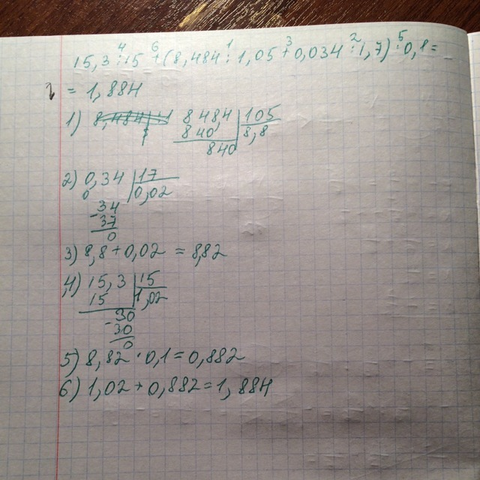 4 6 1 3 2 5
15,3 : 15 + (8,484 : 1,05 + 0,034 : 1,7) · 0,1 =
= 1,884
1) 848,4 | 105
840 | 8,8
840
2) 0,34 | 17
0 | 0,02
-34
37
0
3) 8,8 + 0,02 = 8,82
4) 15,3 | 15
15 | 1,02
30
-30
0
5) 8,82 · 0,1 = 0,882
6) 1,02 + 0,882 = 1,884